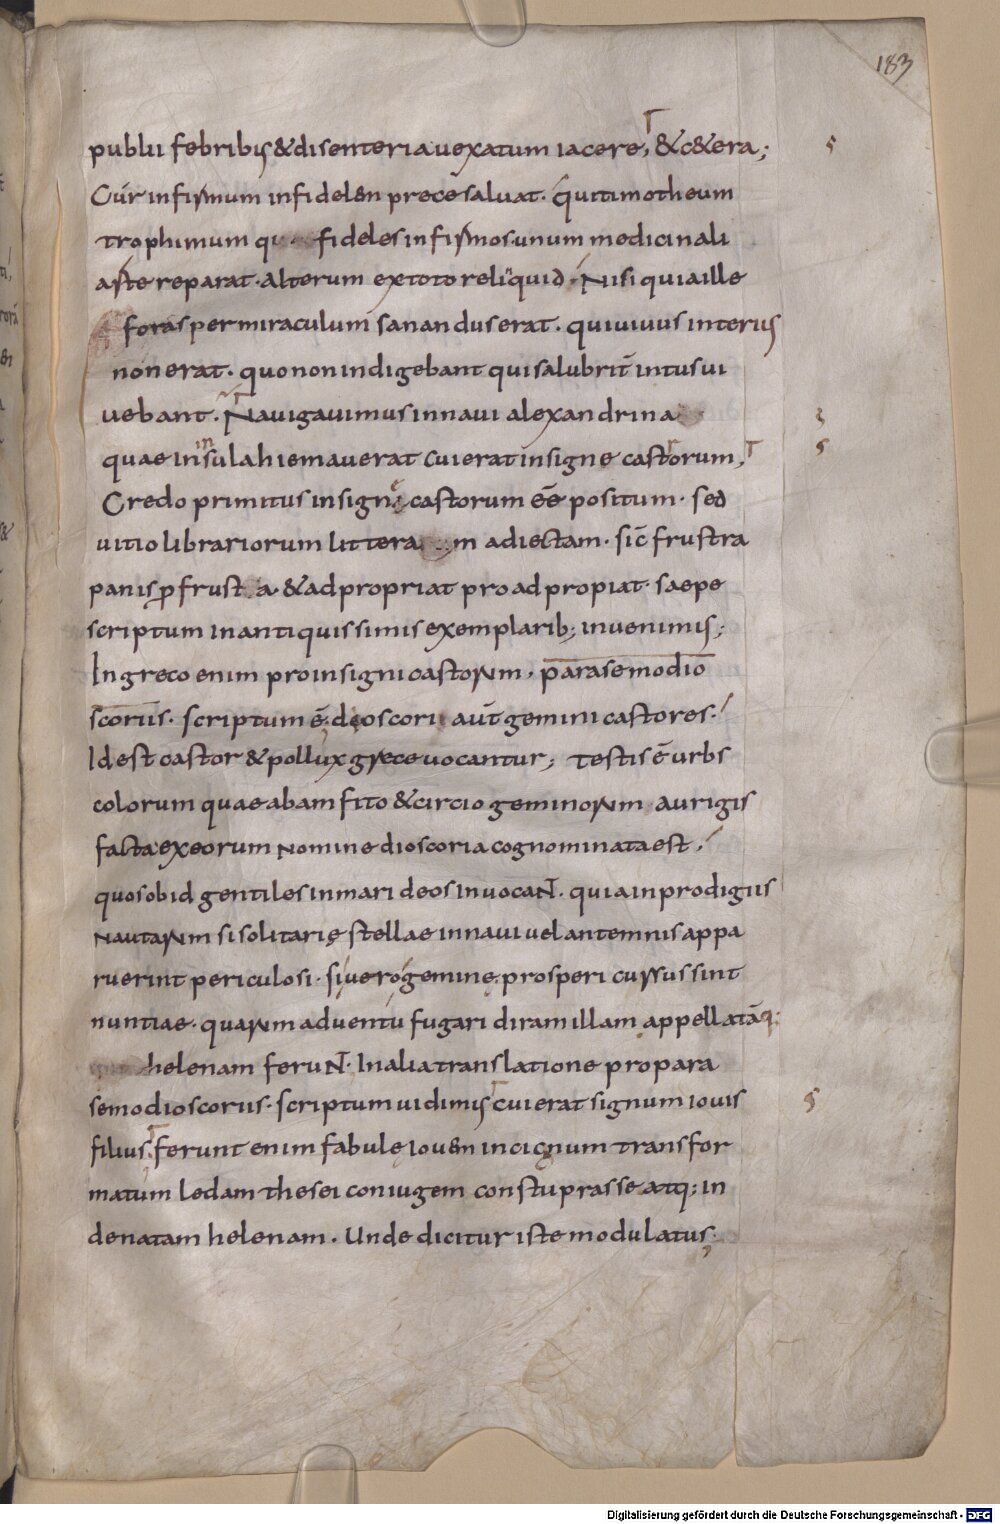 183
publii febribus & disenteria uexatum iacere, & c&era;
Cur infirmum infidelen prece saluat. qui timotheum
trophimum fideles infirmos. unum medicinali
arte reparat. alterum ex toto reliquid. Nisi quia ille
foras per miraculum sanandus erat. qui uiuus interius
non erat. quo non indigebant qui salubrit̄ intus ui
uebant. Nauigauimus in naui alexandrina
quae in insula hiemauerat cui erat insigne castorum,
Credo primitus insigne castorum eē positum. sed
uitio librariorum littera m adiectam. sic̄ frustra
panis ꝑ frusta. & adpropriat pro adpropiat. saepe
scriptum in antiquissimis exemplarib; inuenimus;
In greco enim pro insigni castorum. parasemo dio
scoriis. scriptum ē. dioscori aut̄ gemini castores.
Id est castor & pollux grece uocantur; testis ē urbs
colorum quae ab amfito & circio geminorum aurigis
facta ex eorum nomine dioscoria cognominata est.
quos ob id gentiles in mari deos inuocant. quia in prodigiis
nautarum si solitarie stellae in naui uel antemnis appa
ruerint periculosi. si uero gemine. prosperi cursus sint
nuntiae. quarum aduentu fugari diram illam appellatāq;
helenam ferunt. In alia translatione pro para
semo dioscoriis. scriptum uidimus cui erat signum iouis
filius. ferunt enim fabulę iouem in cicnum transfor
matum ledam thesei coniugem constuprasse atq; in
de natam helenam. Unde dicitur iste modulatus.
Digitalisierung gefördert durch die Deutsche Forschungsgemeinschaft - DFG